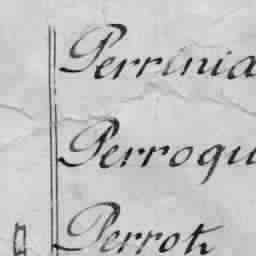 Perrinia
Perroqu
Perroh